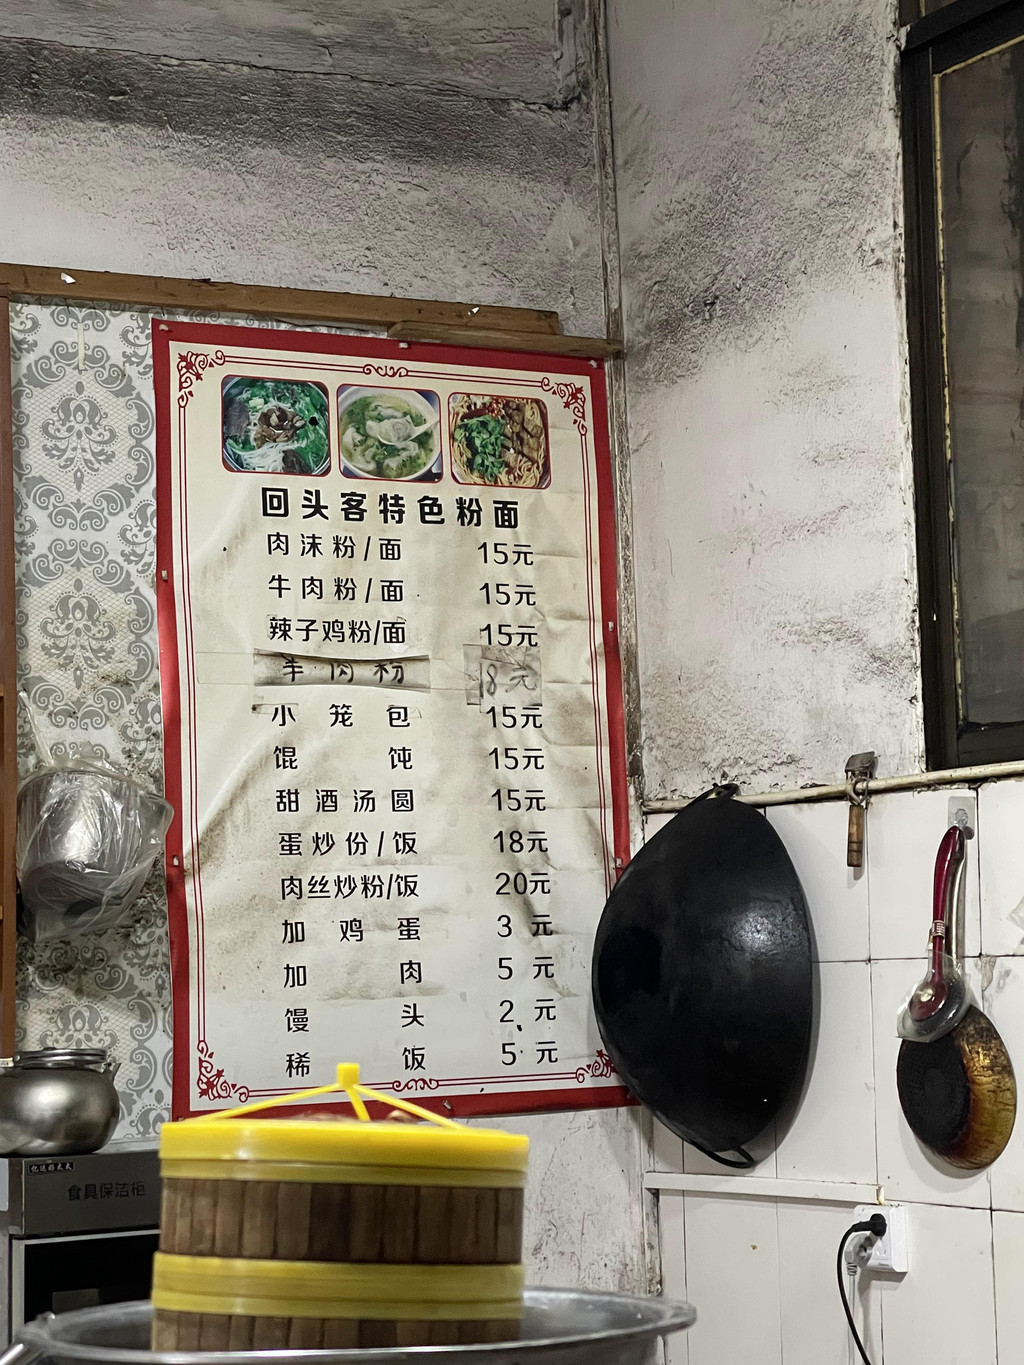 回头客特色粉面
肉沫粉/面 15元
牛肉粉/面 15元
辣子鸡粉/面 15元
羊肉粉 18元
小笼包 15元
馄饨 15元
甜酒汤圆 15元
蛋炒份/饭 18元
肉丝炒粉/饭 20元
加鸡蛋 3元
加肉 5元
馒头 2元
稀饭 5元
食具保洁柜